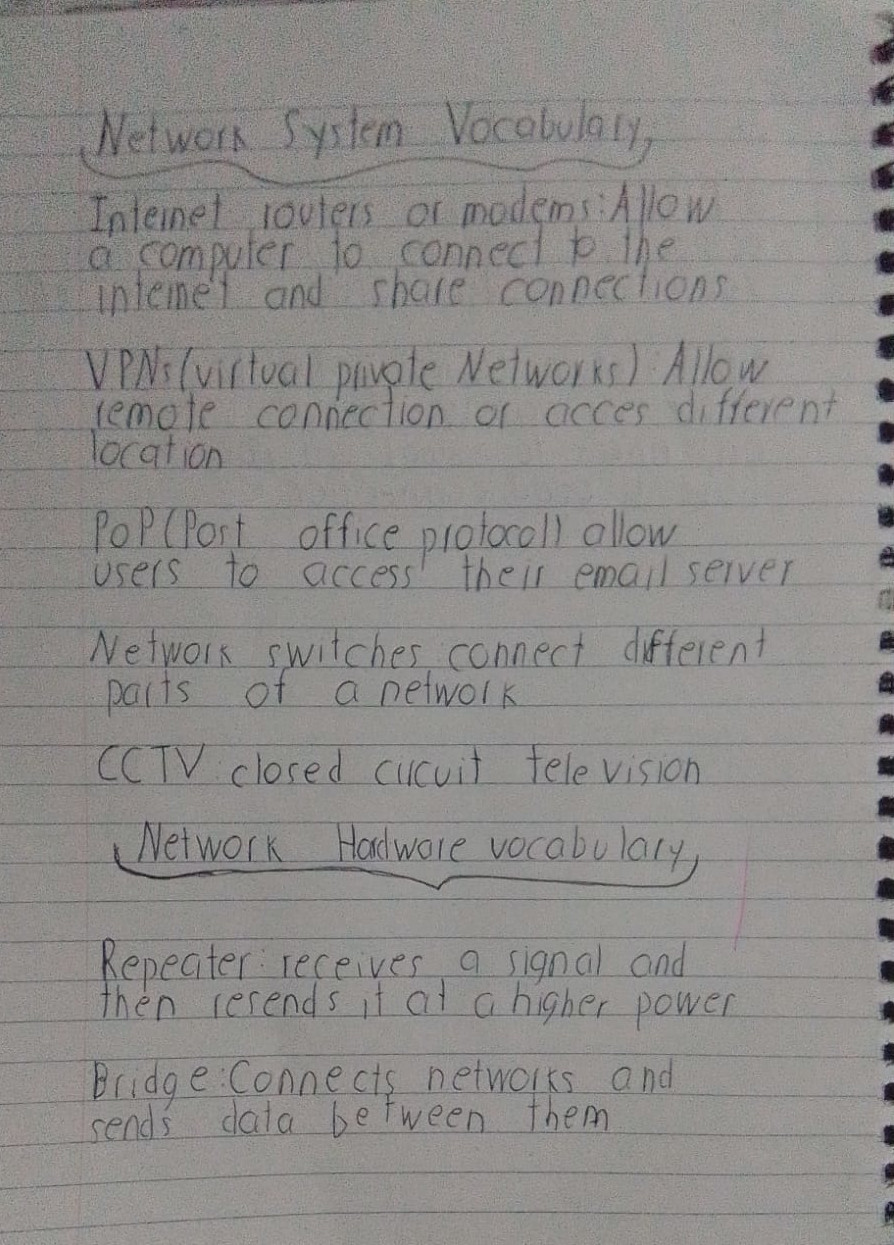 Network System Vocabulary
Internet routers or modems: Allow
a computer to connect to the
internet and share connections
VPNs (virtual private Networks): Allow
remote connection or acces different
location
PoP (Post office protocol) allow
users to access their email server
Network switches connect different
parts of a network
CCTV closed circuit television
Network Hardware vocabulary
Repeater: receives a signal and
then resends it at a higher power
Bridge: Connects networks and
sends data between them